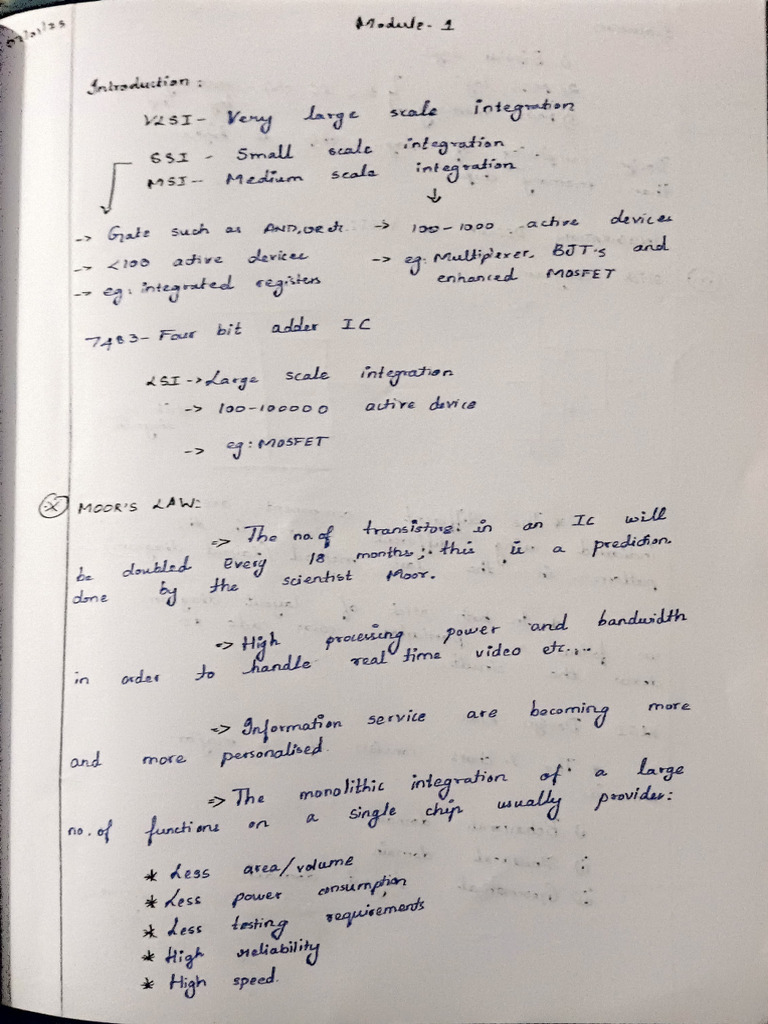 Module - 1
Introduction :
VLSI - Very large scale integration
SSI - Small scale integration
MSI - Medium scale integration
-> Gate such as AND, OR etc.
-> <100 active devices
-> eg: integrated registers
-> 100-1000 active devices
-> eg: Multiplexer, BJT's and
enhanced MOSFET
7483 - Four bit adder IC
LSI -> Large scale integration
-> 100-100000 active device
-> eg: MOSFET
MOOR'S LAW:
=> The no. of transistors in an IC will
be doubled Every 18 months; this is a prediction
done by the scientist Moor.
=> High processing power and bandwidth
in order to handle real time video etc....
=> Information service are becoming more
and more personalised.
=> The monolithic integration of a large
no. of functions on a single chip usually provides:
* Less area/volume
* Less power consumption
* Less testing requirements
* High reliability
* High speed.